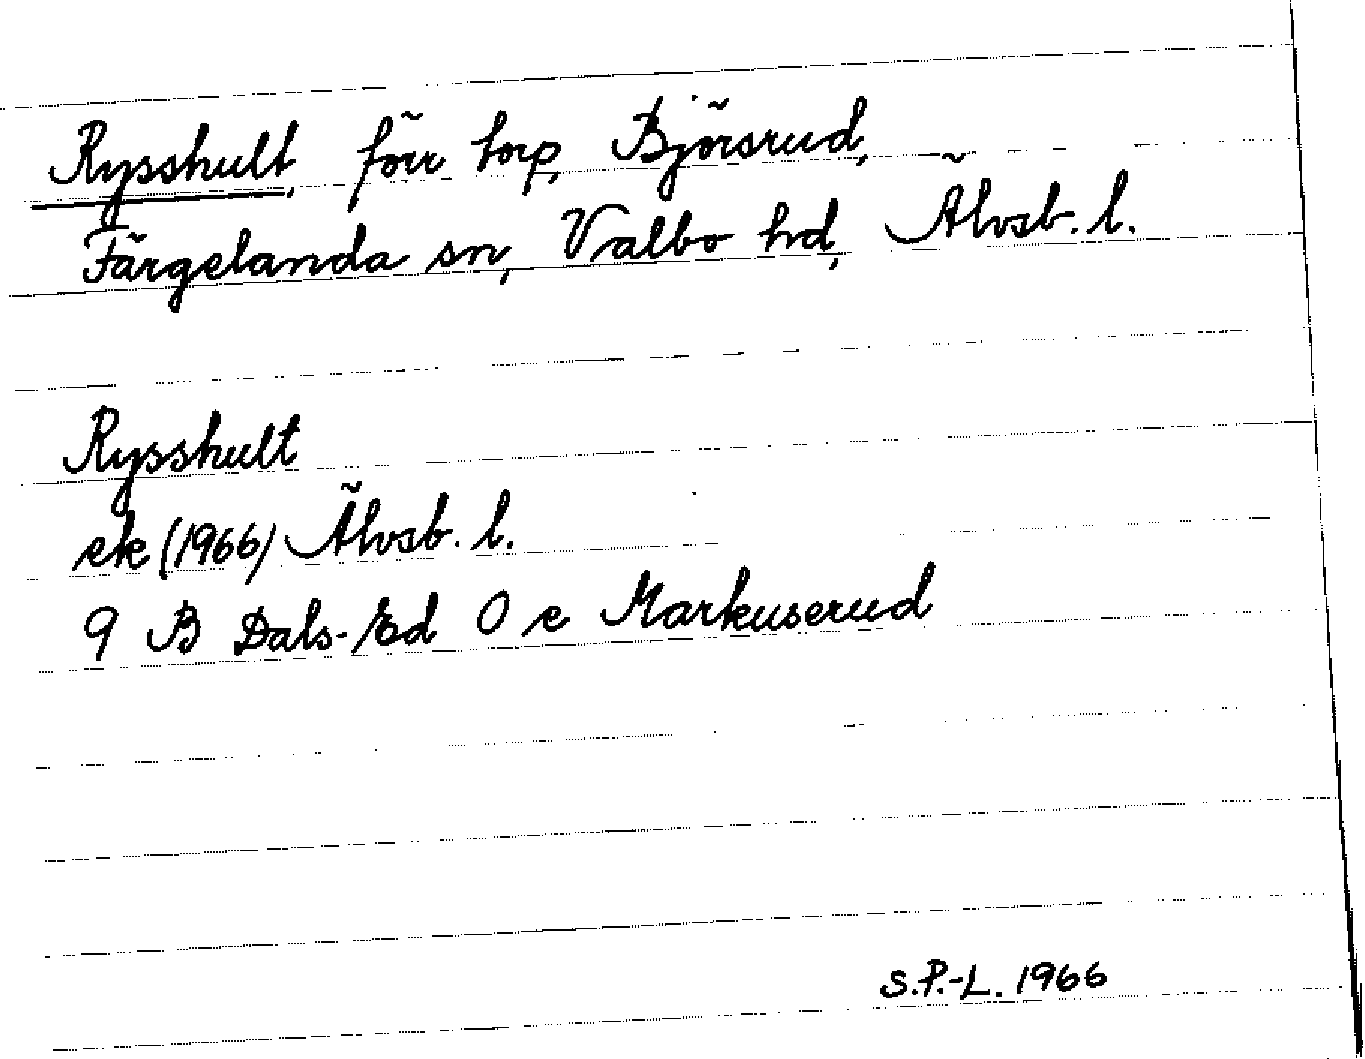 Rysshult, förr torp, Björsrud,
Färgelanda sn, Valbo hd, Älvsb. l.
Rysshult
ek (1966) Älvsb. l.
9 B Dals-Ed 0 e Markuserud
S.P.-L. 1966